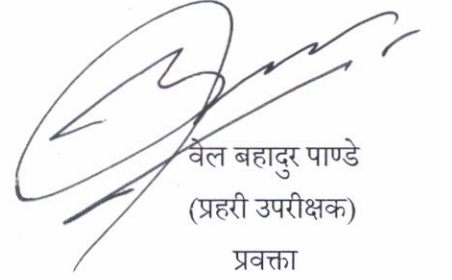 वेल बहादुर पाण्डे
(प्रहरी उपरीक्षक)
प्रवक्ता